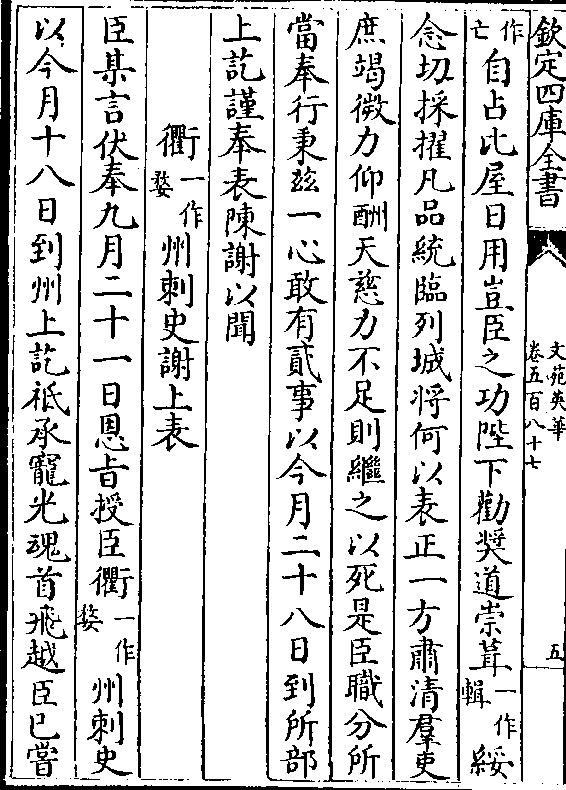 欽定四庫全書
文苑英華
卷五百八十七
五
作亡自占比屋日用豈臣之功陛下勸奨道崇葺一作輯綏
念切採擢凡品統臨列城將何以表正一方肅清羣吏
庶竭微力仰酬天慈力不足則繼之以死是臣職分所
當奉行秉兹一心敢有貳事以今月二十八日到所部
上訖謹奉表陳謝以聞
衢一作婺州刺史謝上表
臣某言伏奉九月二十一日恩㫖授臣衢一作婺州刺史
以今月十八日到州上訖祗承寵光魂首飛越臣已嘗